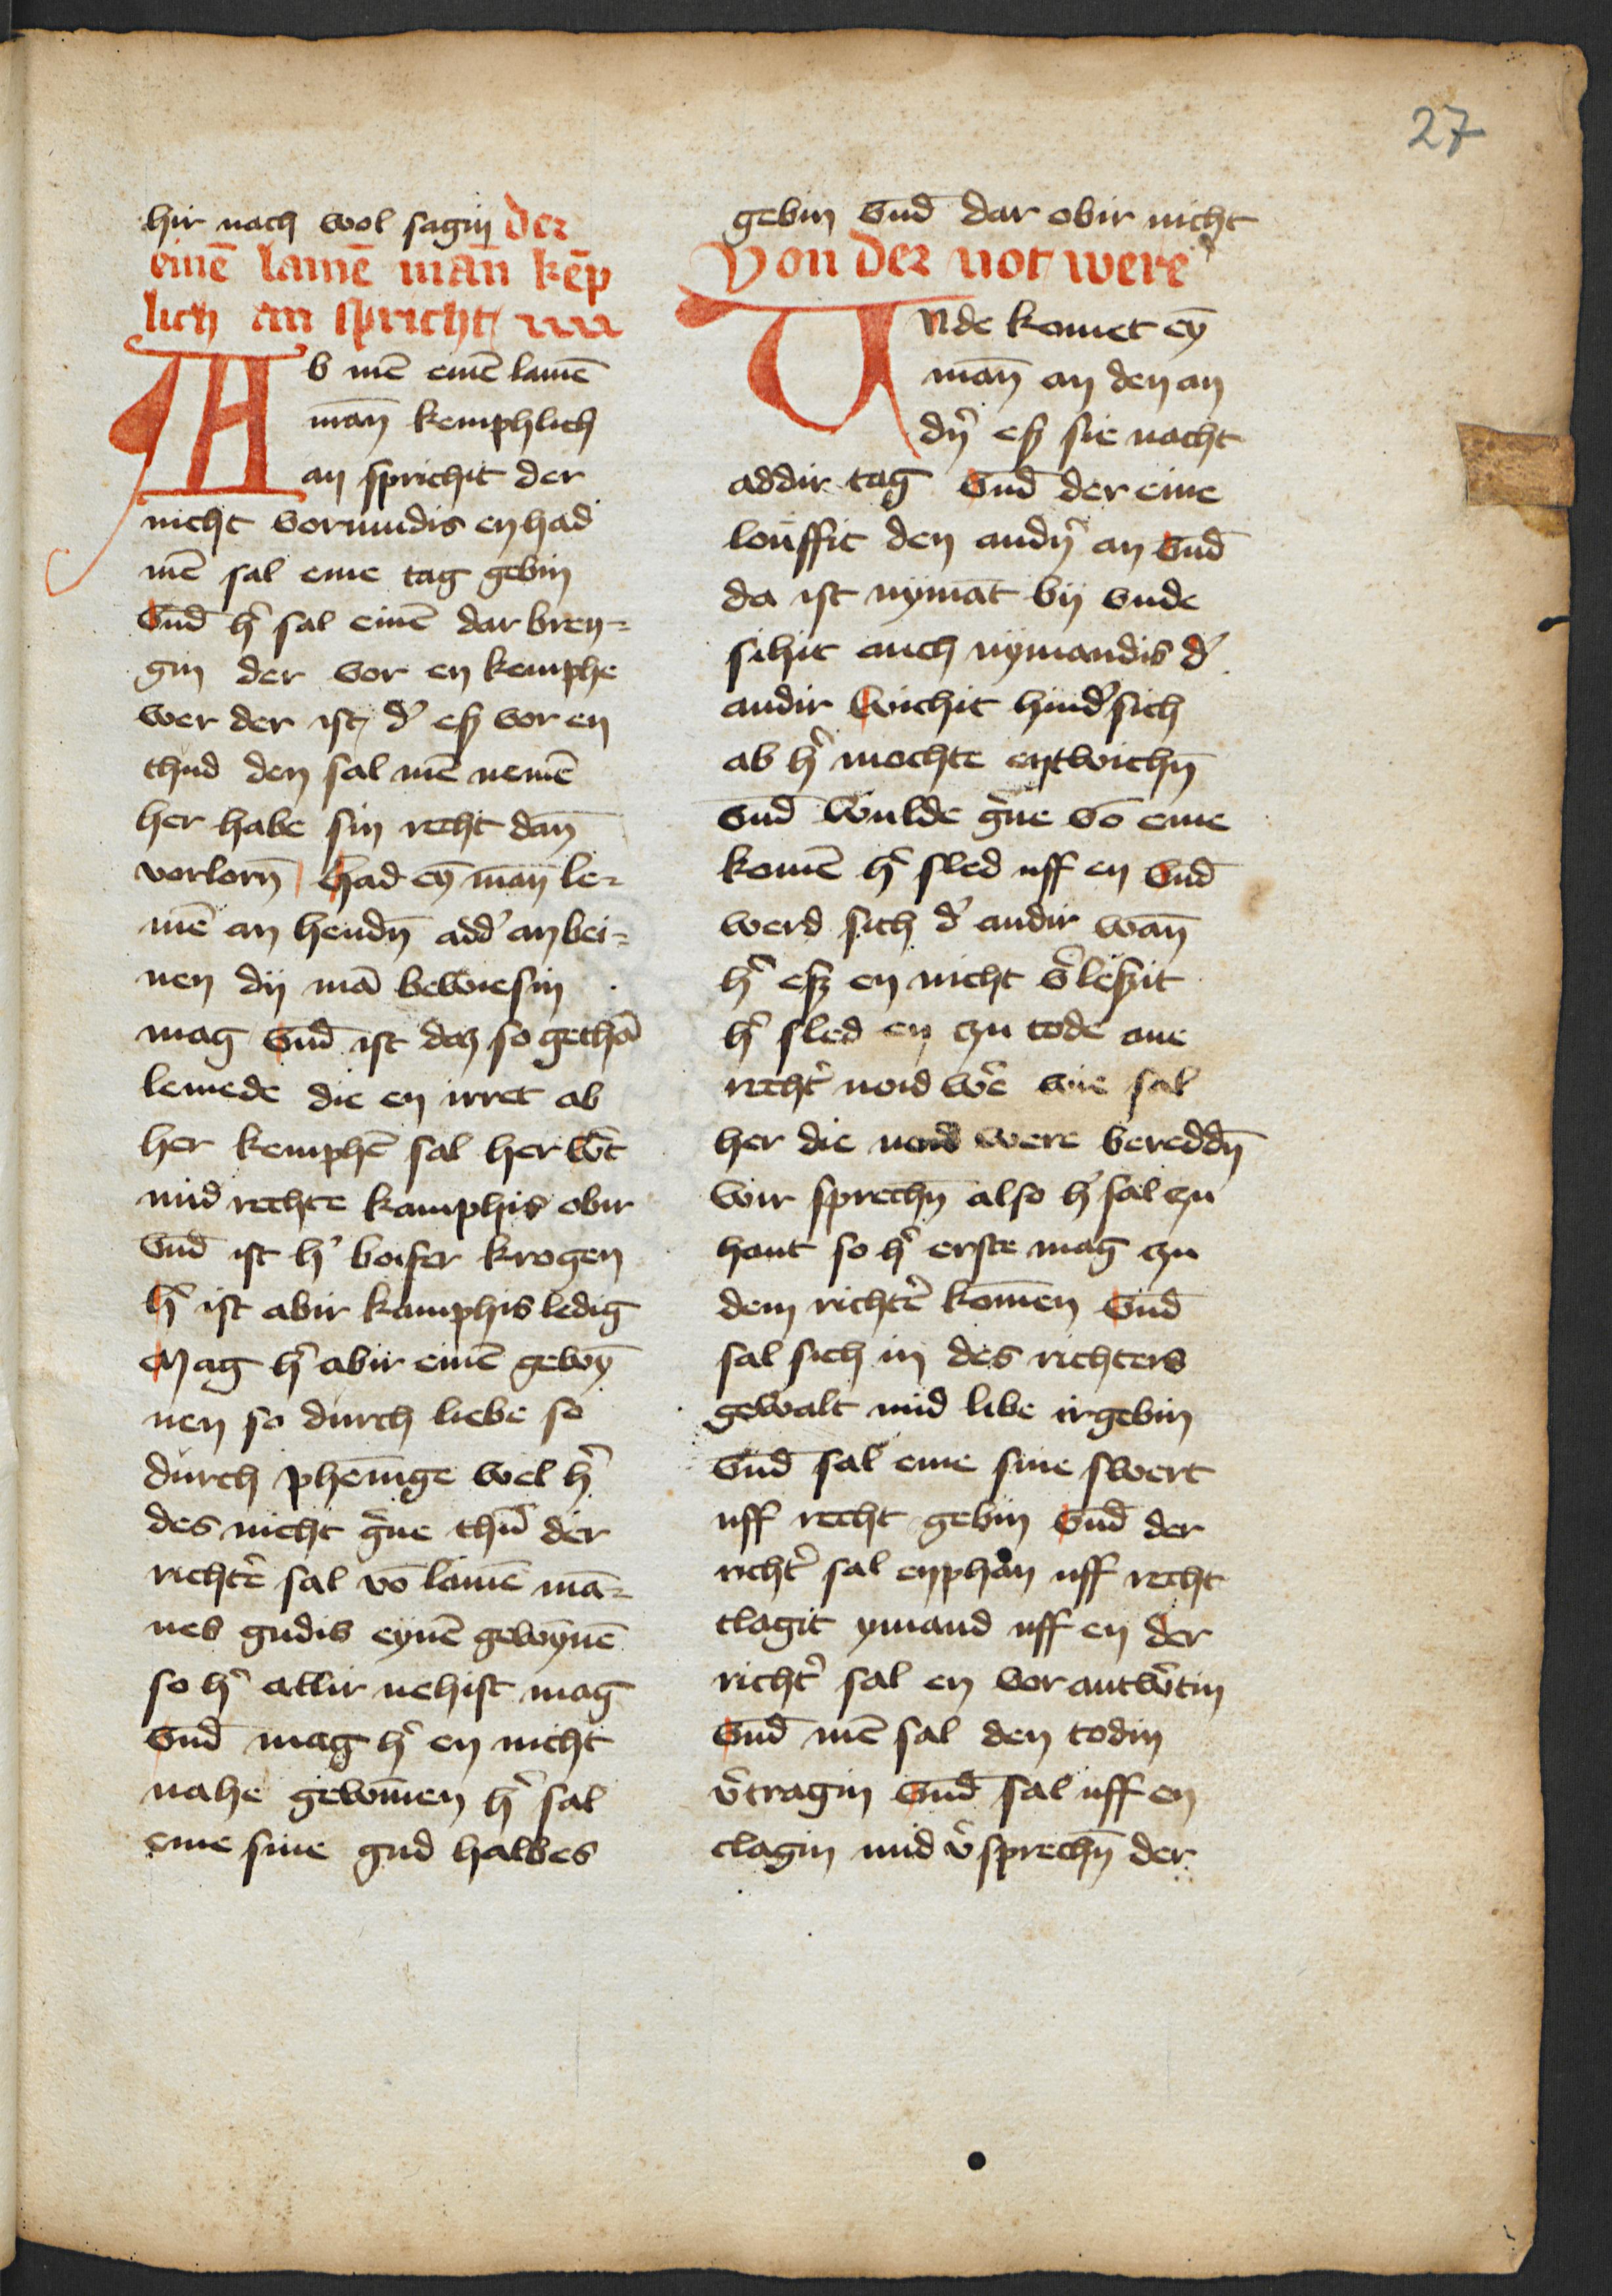 27
hir nach wol sagin der
einē lamē mān kēp
lich an spricht
Ab mē einē lamē
mān kemphlich
an sprichit der
nicht vormundis en had
mē sal eme tag gebin
vnd̄ h' sal einē dar bren-
gin der vor en kemphe
wer der ist d' eß vor en
thud den sal mē nemē
her habe sin recht dan̄
vorlorn̄ had eȳ mān le-
mē an hendn̄ add' an bei-
nen dij mā bewiesin
mag vnd̄ ist daz so gethā
lemede die en irret ab
her kemphē sal her w't
mid rechte kamphis obir
vnd̄ ist h' boiser krogen
h' ist abir kamphis ledig
Mag h' abir einē gewȳ
nen so durch liebe so
durch phenīge wel h'
des nicht g'ne thū der
richt'e sal vō lamē mā-
nes gudis eynē gewȳnē
so h' allir nehist mag
vnd̄ mag h' en nicht
nahe gewīnen h' sal
eme sine gud halbes
gebin vnd̄ dar obir nicht
Von der not were
Vnde komet eȳ
mān an den an
dn' eß sie nacht
addir tag vnd̄ der eine
louffit den andn' an vnd̄
da ist nymāt bij vnde
sihit auch nymandis d'
andir wichit hind' sich
ab h' mochte entwichn̄
vnd̄ wulde g'ne vō eme
komē h' sled uff en vnd̄
werd sich d' andir wan̄
h' eß en nicht v'leßit
h' sled en zu tode ane
recht' noid w'e wie sal
her die noid were bereddn̄
wir sprechn̄ also h' sal zu
hant so h' erste mag zu
dem richt'e komen vnd̄
sal sich in des richters
gewalt mid libe irgebin
vnd̄ sal eme sine swert
uff recht gebin vnd̄ der
richt' sal enphan uff recht
clagit ymand uff en der
richt' sal en vor antw'tin
vnd̄ mē sal den todin
v'tragin vnd̄ sal uff en
clagin mid v'sprechn̄ der